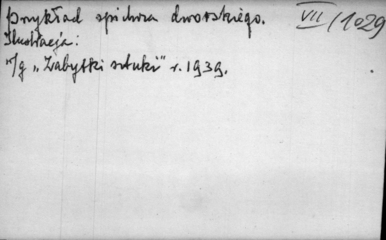 Przykład spichrza dworskiego.
VII/1029
Ilustracja:
w/g „Zabytki sztuki" r. 1939.